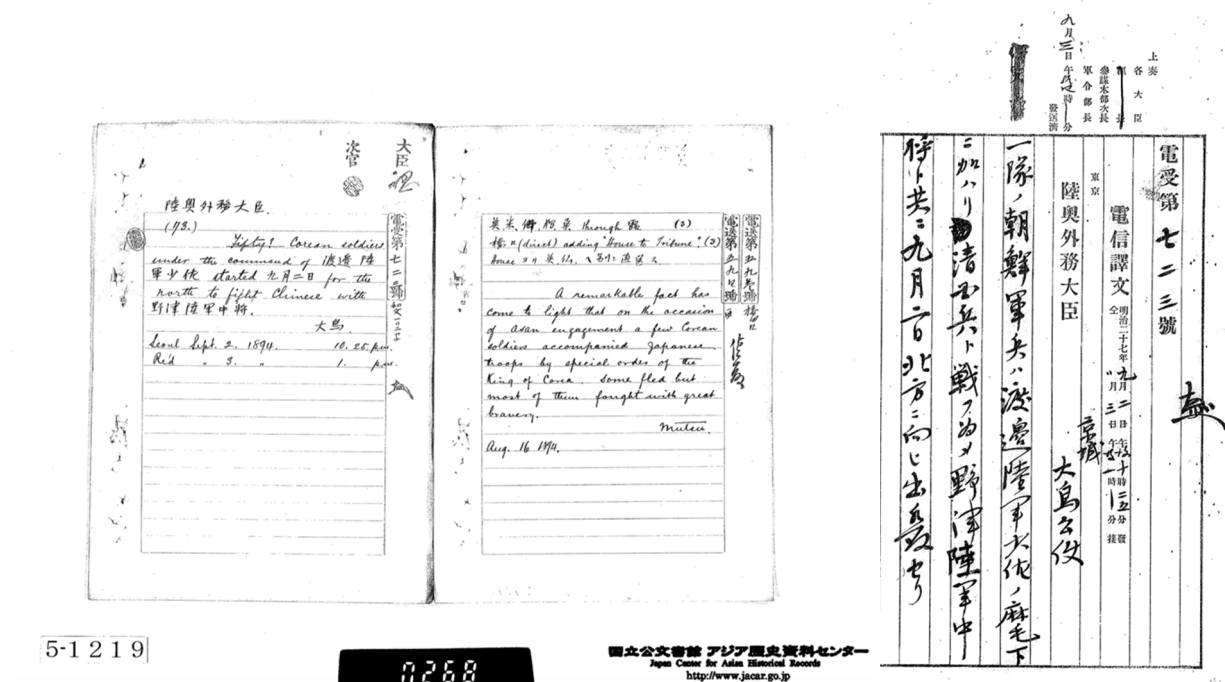 大臣
次官
陸奥外務大臣.
(173.)
電受第七二三號
Fifty? Corean soldiers
under the command of 渡邉陸
軍少佐 started 九月二日 for the
north to fight Chinese with
野津陸軍中將.
大鳥
Seoul Sept. 2. 1894. 10.25. p.m.
Re'd " 3. " 1. p.m.
through 露 (2)
(direct) adding "House to Tribune" (3)
House ヨリ英仏
電送第五九
電送第五九
A remarkable fact has
come to light that on the occasion
of Asan engagement a few Corean
soldiers accompanied Japanese
troops by special order of the
King of Corea. Some fled but
most of them fought with great
bravery.
Mutsu.
Aug. 16 1894.
5-1219
0268
国立公文書館 アジア歴史資料センター
Japan Center for Asian Historical Records
http://www.jacar.go.jp
上奏
各大臣
參謀本部次長
軍令部長
九月三日午后 時 分
發送濟
電受第七二三號
電信譯文
明治二十七年九月二日午后十時二五分發
仝 月三日午后一時 分接
東京
京城
陸奥外務大臣
大鳥公使
一隊ノ朝鮮軍兵ハ渡邉陸軍大佐ノ麾下
ニ加ハリ清国兵ト戦フ為メ野津陸軍中
将ト共ニ九月二日北方ニ向ヒ出發セリ